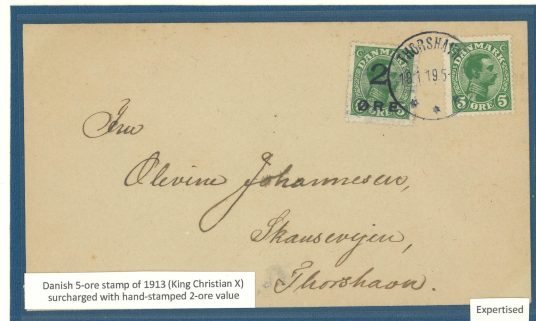 DANMARK
2
ØRE
5 ØRE 5
THORSHAVN
18.1.19 5-
DANMARK
5 ØRE 5
Fru
Olevine Johannesen,
Skansevejen,
Thorshavn.
Danish 5-ore stamp of 1913 (King Christian X)
surcharged with hand-stamped 2-ore value
Expertised